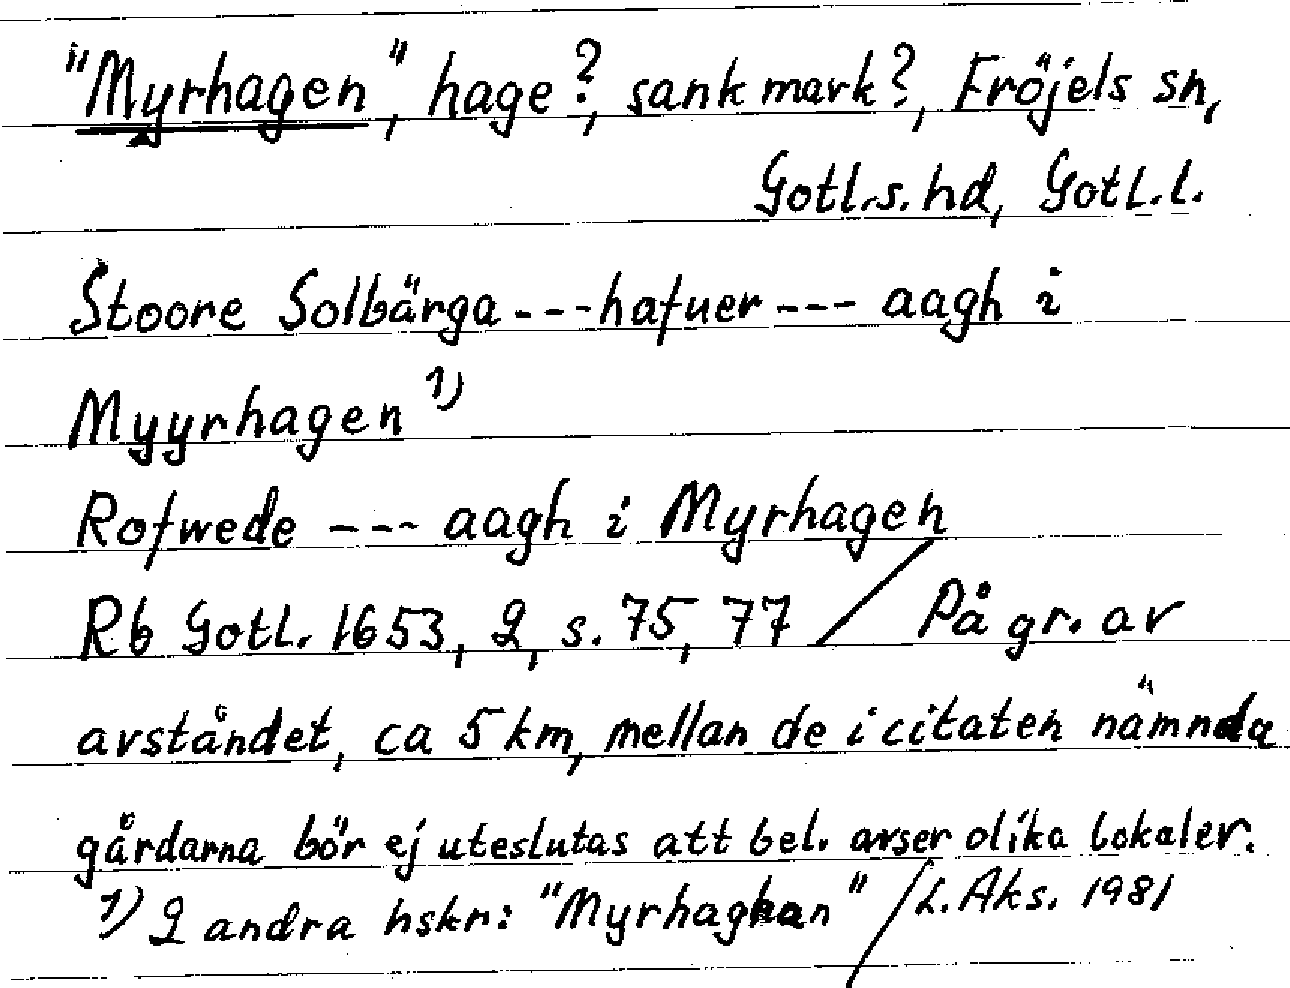 "Myrhagen", hage?, sank mark?, Fröjels sn,
Gotl.s. hd, Gotl.l.
Stoore Solbärga --- hafuer --- aagh i
Myyrhagen 1)
Rofwede --- aagh i Myrhagen
Rb Gotl. 1653, 2, s. 75, 77 / På gr. av
avståndet, ca 5 km, mellan de i citaten nämnda
gårdarna bör ej uteslutas att bel. avser olika lokaler.
1) 2 andra hskr: "Myrhaghan" / L. Aks. 1981